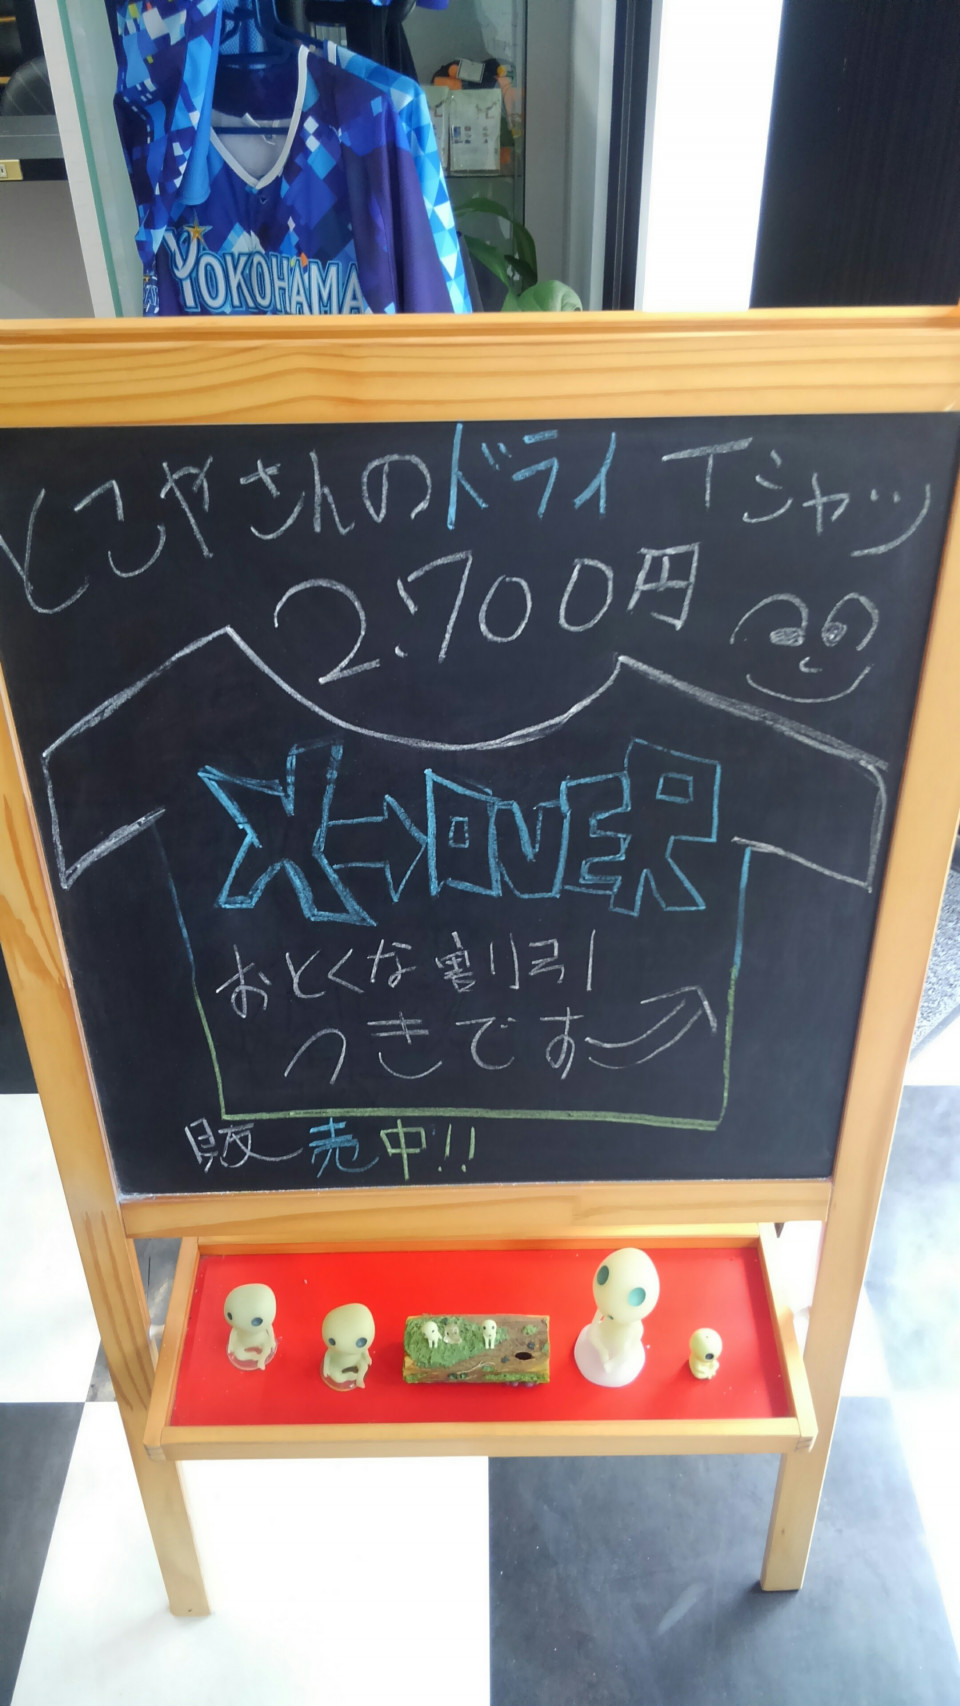 YOKOHAMA
とこやさんのドライ Tシャツ
2.700円
X→OVER
おとくな割引
つきです
販売中!!